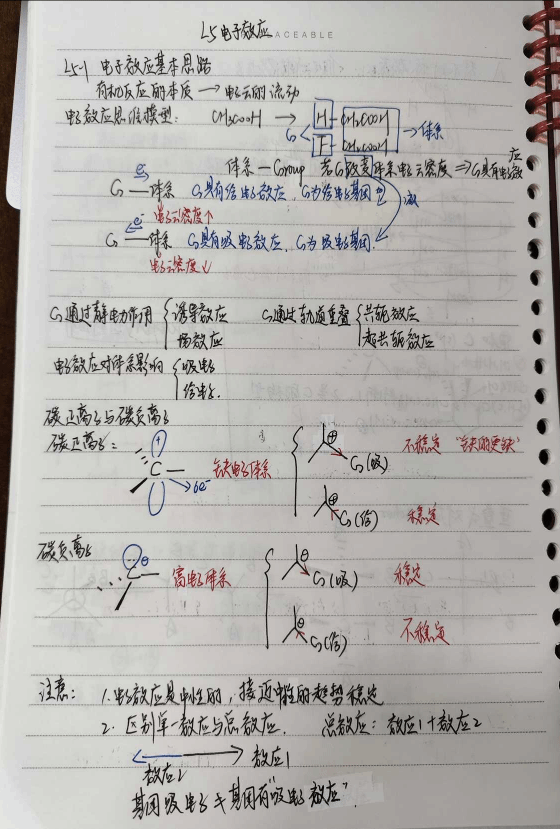 L5 电子效应
ACEABLE
L5-1 电子效应基本思路
有机反应的本质 → 电子云的流动
电子效应思维模型: CH3COOH → H-CH2COOH
G F-CH2COOH → 体系
体系-Group 若G改变体系电子云密度 ⇒ G具有电子效应
e-
G — 体系 G具有给电子效应, G为给电子基团 增
电子云密度↑ 减
e-
G — 体系 G具有吸电子效应, G为吸电子基团
电子云密度↓
G通过静电力作用 { 诱导效应 场效应
G通过轨道重叠 { 共轭效应 超共轭效应
电子效应对体系影响 { 吸电子 给电子.
碳正离子与碳负离子
碳正离子: C 缺电子体系 6e-
⊕ G(吸) 不稳定 "缺的更缺"
⊕ G(给) 稳定
碳负离子 C ⊖ 富电子体系
⊖ G(吸) 稳定
⊖ G(给) 不稳定
注意: 1. 电子效应是中性的, 接近中性的趋势稳定
2. 区别单一效应与总效应. 总效应: 效应1+效应2
效应2 效应1
基团吸电子 ≠ 基团有"吸电子效应".